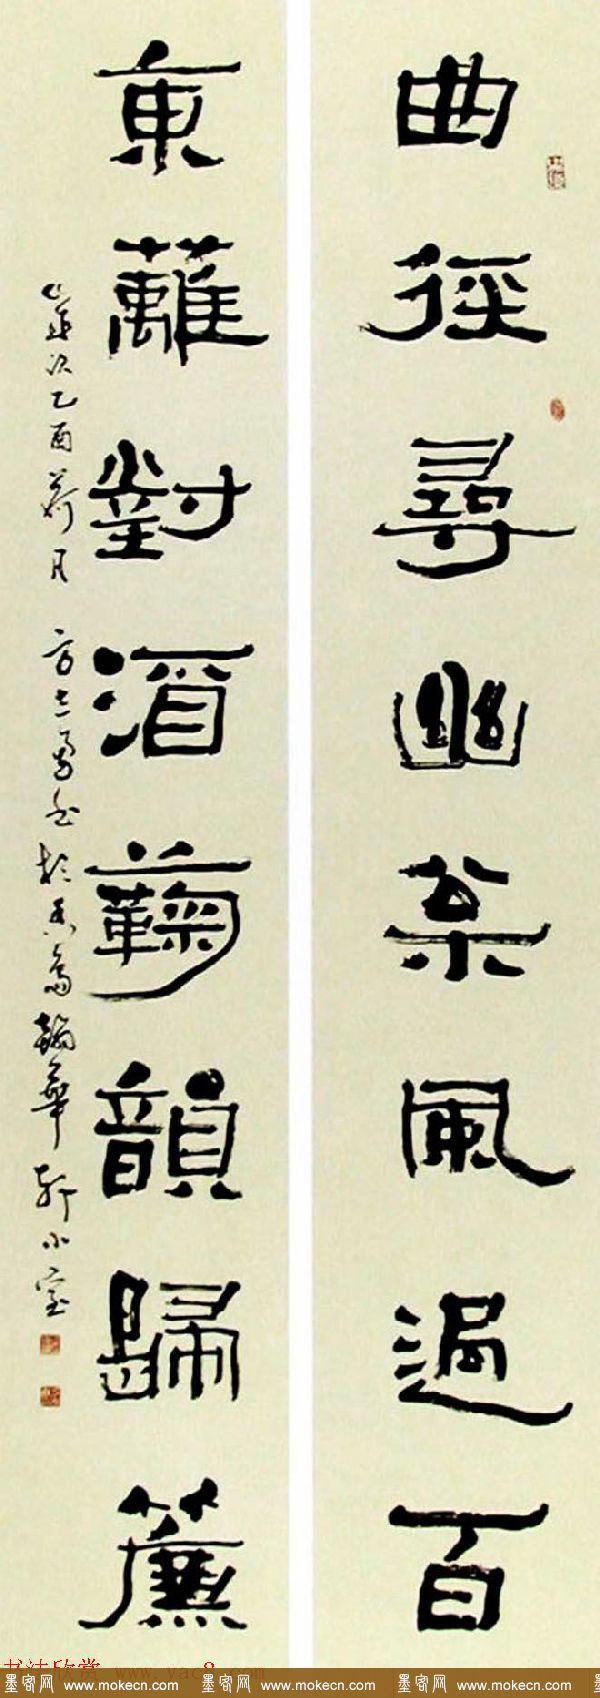 曲徑尋幽風過百
東蘺對酒蘜韻歸簾
歲次乙酉荷月 方士勇書於島翰華軒小室
书法欣赏 www.yac8.com
墨客网 www.mokecn.com 墨客网 www.mokecn.com 墨客网 www.mokecn.com